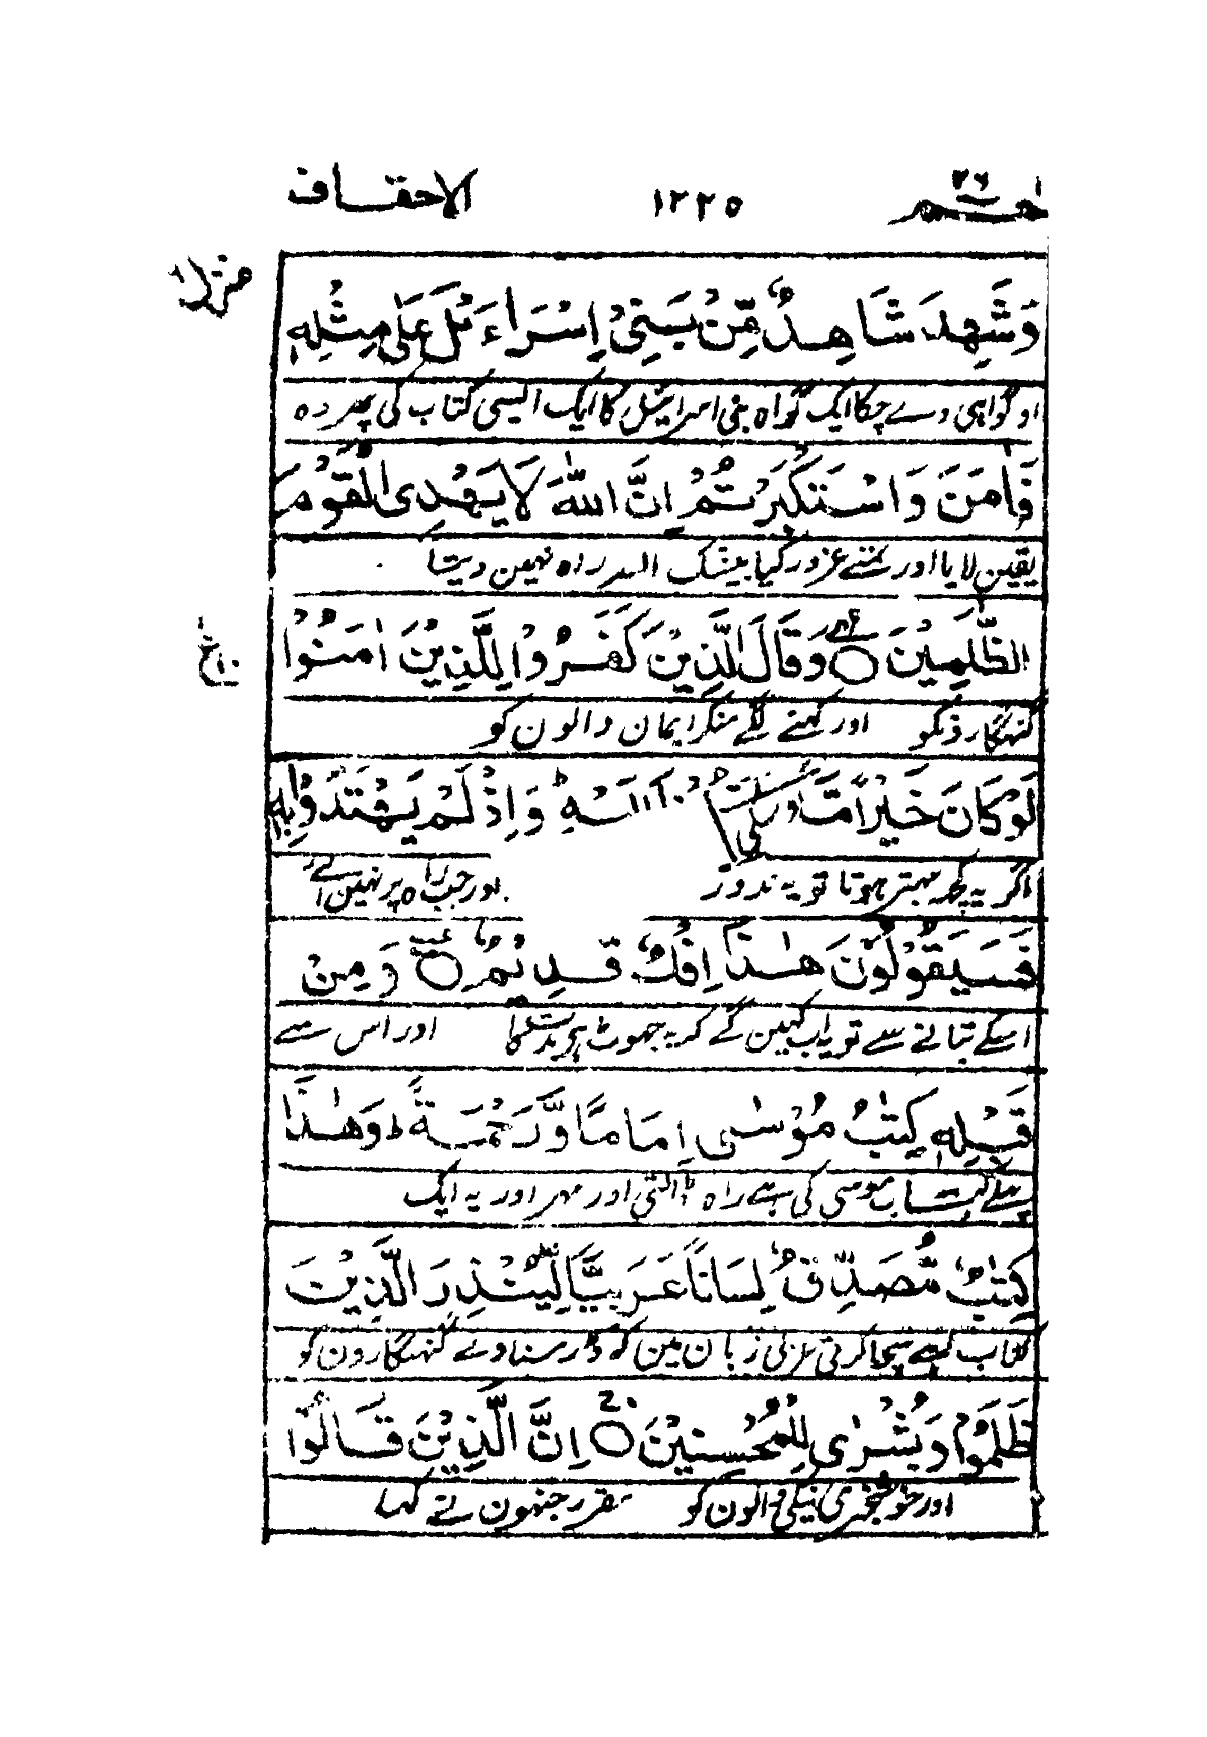 حٰم ۲۶ ۱۲۲۵ الاحقاف
منزل ۶
وَشَهِدَ شَاهِدٌ مِّنْ بَنِیْٓ اِسْرَآءِیْلَ عَلٰی مِثْلِهٖ
اور گواہی دے چکا ایک گواہ بنی اسرائیل کا ایک ایسی کتاب کی پھر وہ
فَاٰمَنَ وَاسْتَكْبَرْتُمْ اِنَّ اللّٰهَ لَا یَهْدِی الْقَوْمَ
یقین لایا اور تمنے غرور کیا بیشک اللہ راہ نہین دیتا
الظّٰلِمِیْنَ ۝ وَقَالَ الَّذِیْنَ كَفَرُوْا لِلَّذِیْنَ اٰمَنُوْا
گنہگارونکو اور کہنے لگے منکر ایمان والون کو
لَوْ كَانَ خَیْرًا مَّا وَاِذْ لَمْ یَهْتَدُوْا بِهٖ
اگر یہ کچھ بہتر ہوتا تو یہ نہ دوڑ اور جب راہ پر نہین آئے
فَسَیَقُوْلُوْنَ هٰذَآ اِفْكٌ قَدِیْمٌ ۝ وَمِنْ
اسکے بتانے سے تو یہ اب کہین گے کہ یہ جھوٹ ہے اور اس سے
قَبْلِهٖ كِتٰبُ مُوْسٰۤی اِمَامًا وَّرَحْمَةً ط وَهٰذَا
پہلے کتاب موسی کی ہے راہ ڈالتی اور مہر اور یہ ایک
كِتٰبٌ مُّصَدِّقٌ لِّسَانًا عَرَبِیًّا لِّیُنْذِرَ الَّذِیْنَ
کتاب ہے سچا کرتی عربی زبان مین کہ ڈر سناوے گنہگارون کو
ظَلَمُوْا وَبُشْرٰی لِلْمُحْسِنِیْنَ ۝ اِنَّ الَّذِیْنَ قَالُوْا
اور خوشخبری نیکی والون کو مقرر جنہون نے کہا